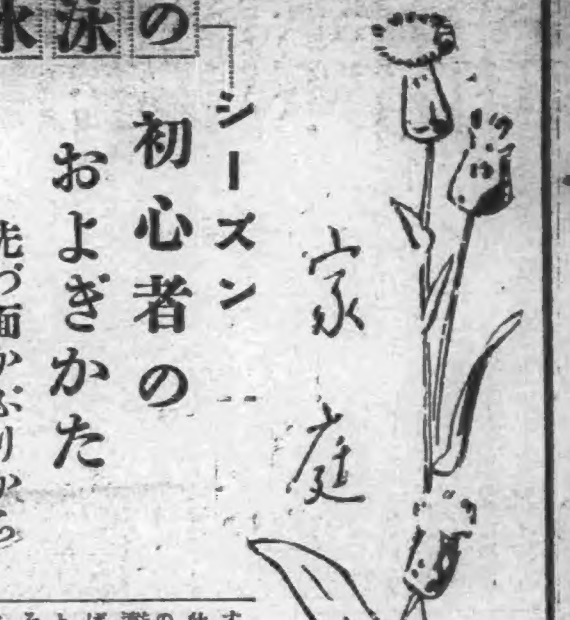 家庭
水泳の
シーズン
初心者の
およぎかた
先づ面かぶりから